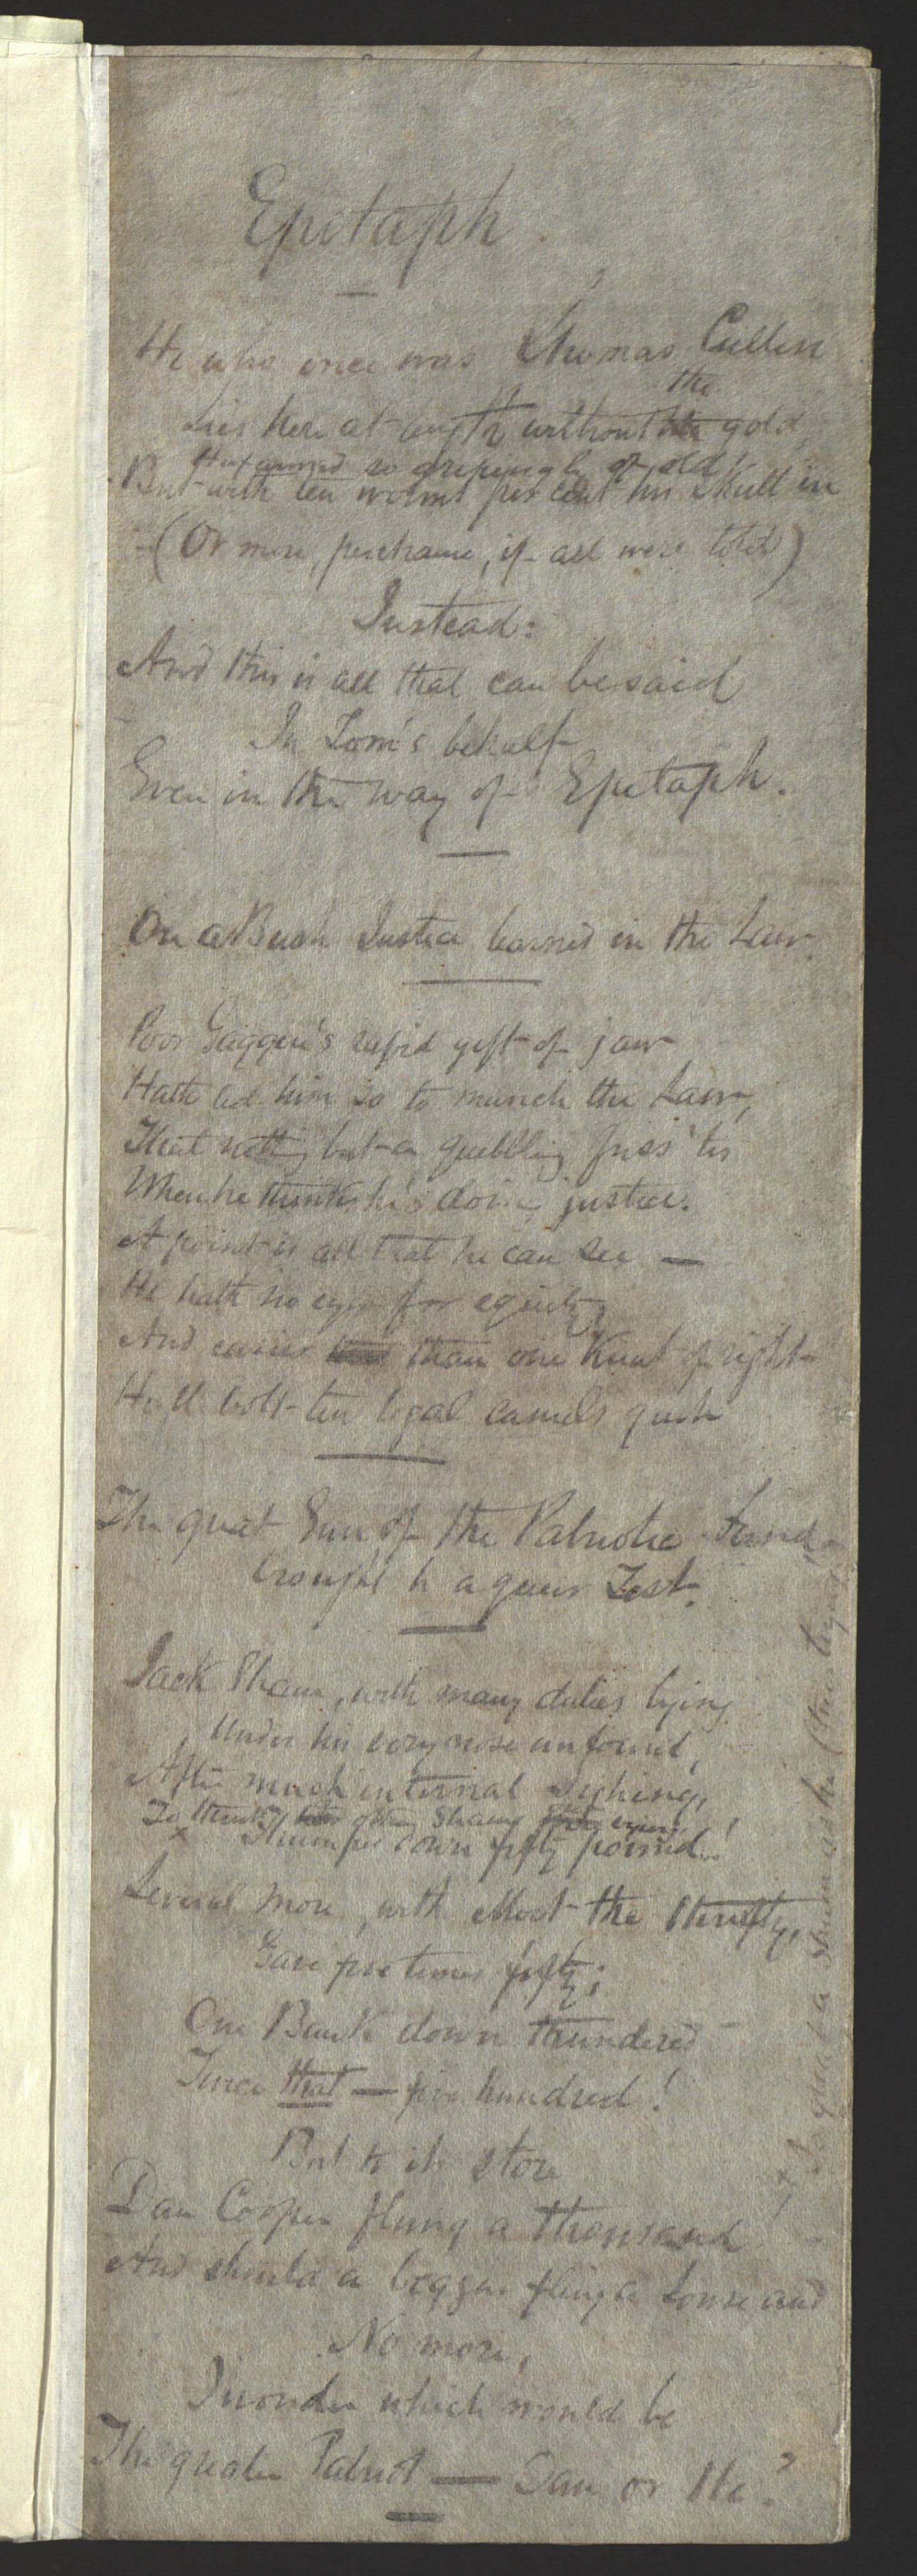 Epitaph.
He who once was Thomas Cullen
the
Lies here at length without gold,
He gained so gripingly of old,
But with ten worms per cent his skull in
(Or more, perchance, if all were told)
Instead:
And this is all that can be said
In Tom's behalf
Even in the way of Epitaph.
On a Bush Justice learned in the Law.
Poor gift of jaw
Hath led him so to munch the Law,
That nothing but a quibbling fuss 'tis
When he thinks he's doing justice.
A point is all that he can see —
He hath no eyes for equity;
And easier than one knat of right
He'll bolt ten legal camels quite
The great Gun of the Patriotic Fund,
brought to a queer Test.
Jack Sham, with many duties lying
Under his very nose unfound,
After much internal sighing,
To think of other Shams
Thumps down fifty pound!
Several more, with effort the thrifty,
Gave five times fifty;
One Bank down thundered
Twice that — five hundred!
But to its store
Dan Cooper flung a thousand!
And should a beggar fling a Louse and
No more,
I wonder which would be
The greater Patriot — Dan or He?
a sham as he